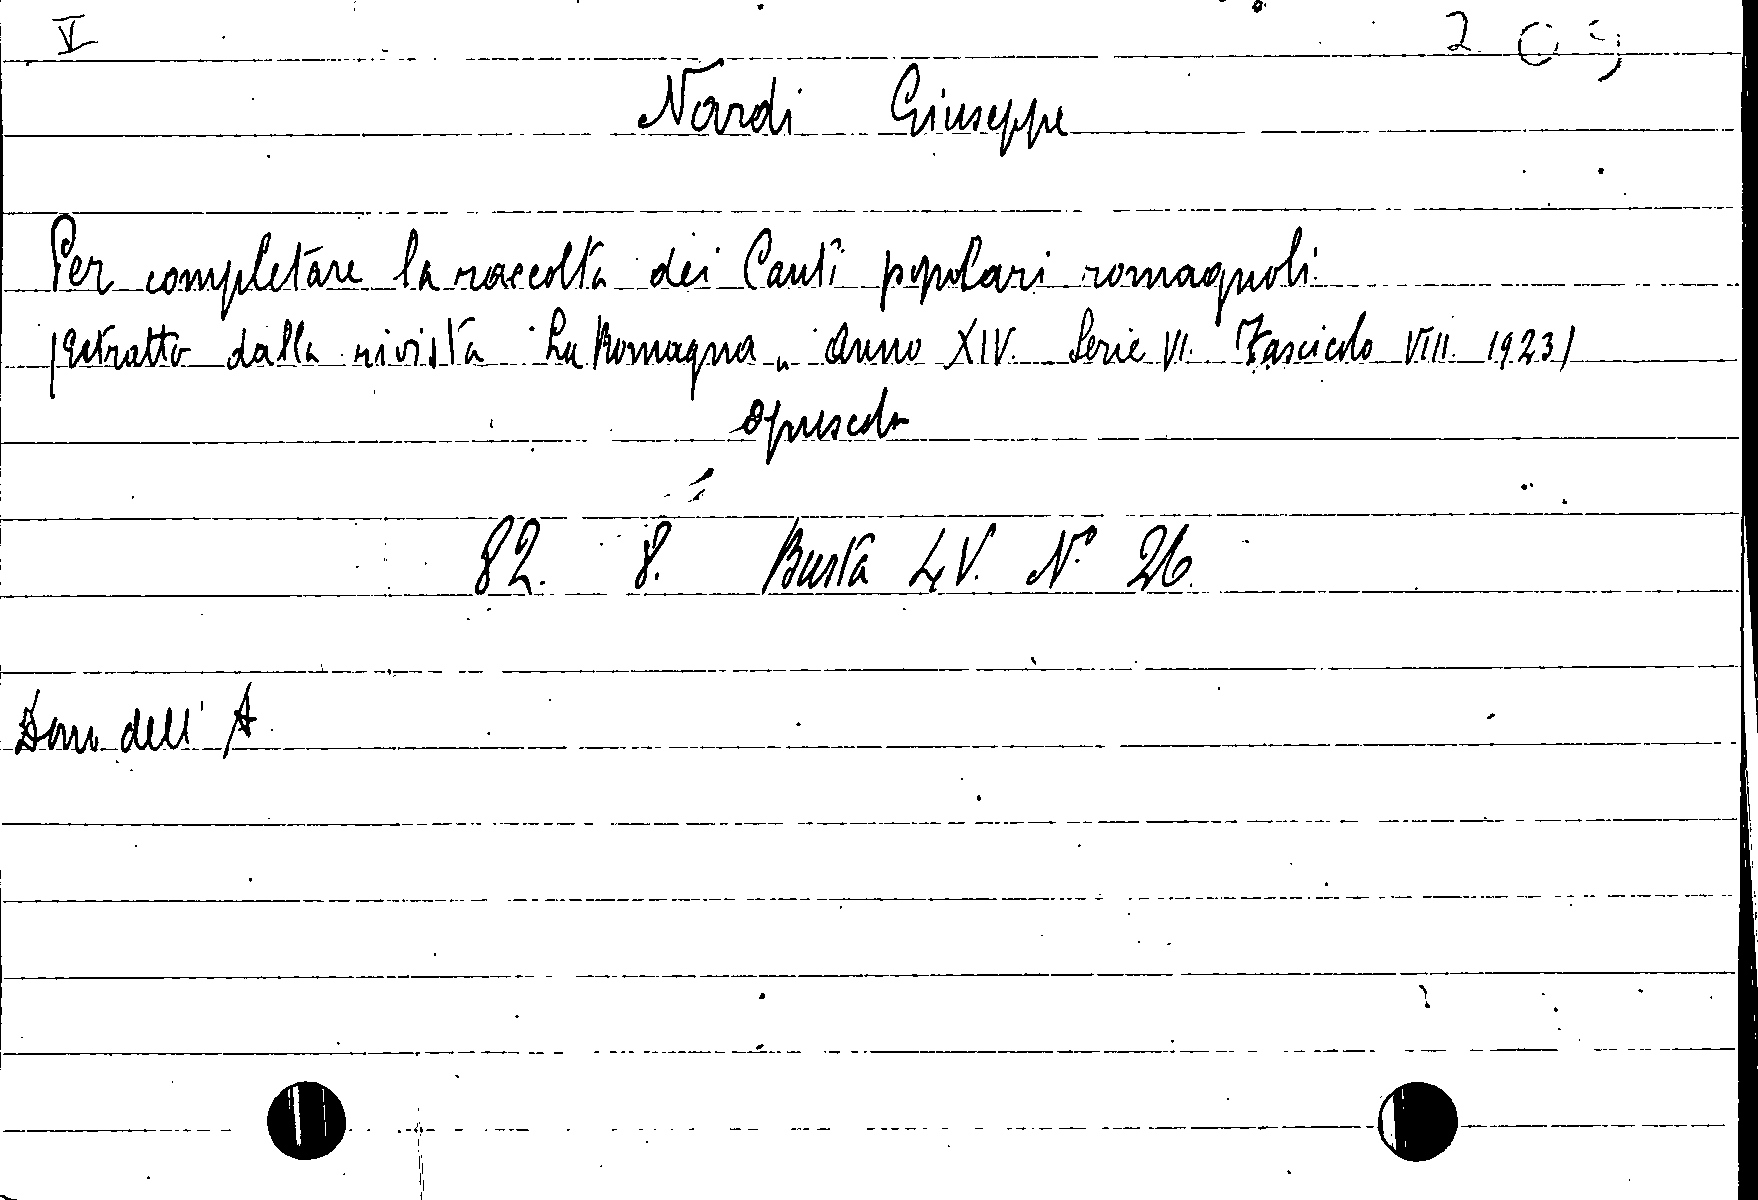 V
Nardi Giuseppe
Per completare la raccolta dei Canti popolari romagnoli
(Estratto dalla rivista "La Romagna" Anno XIV. Serie VI. Fascicolo VIII. 1923)
Opuscolo
82. 8. Busta LV. N° 26.
Dono dell'A